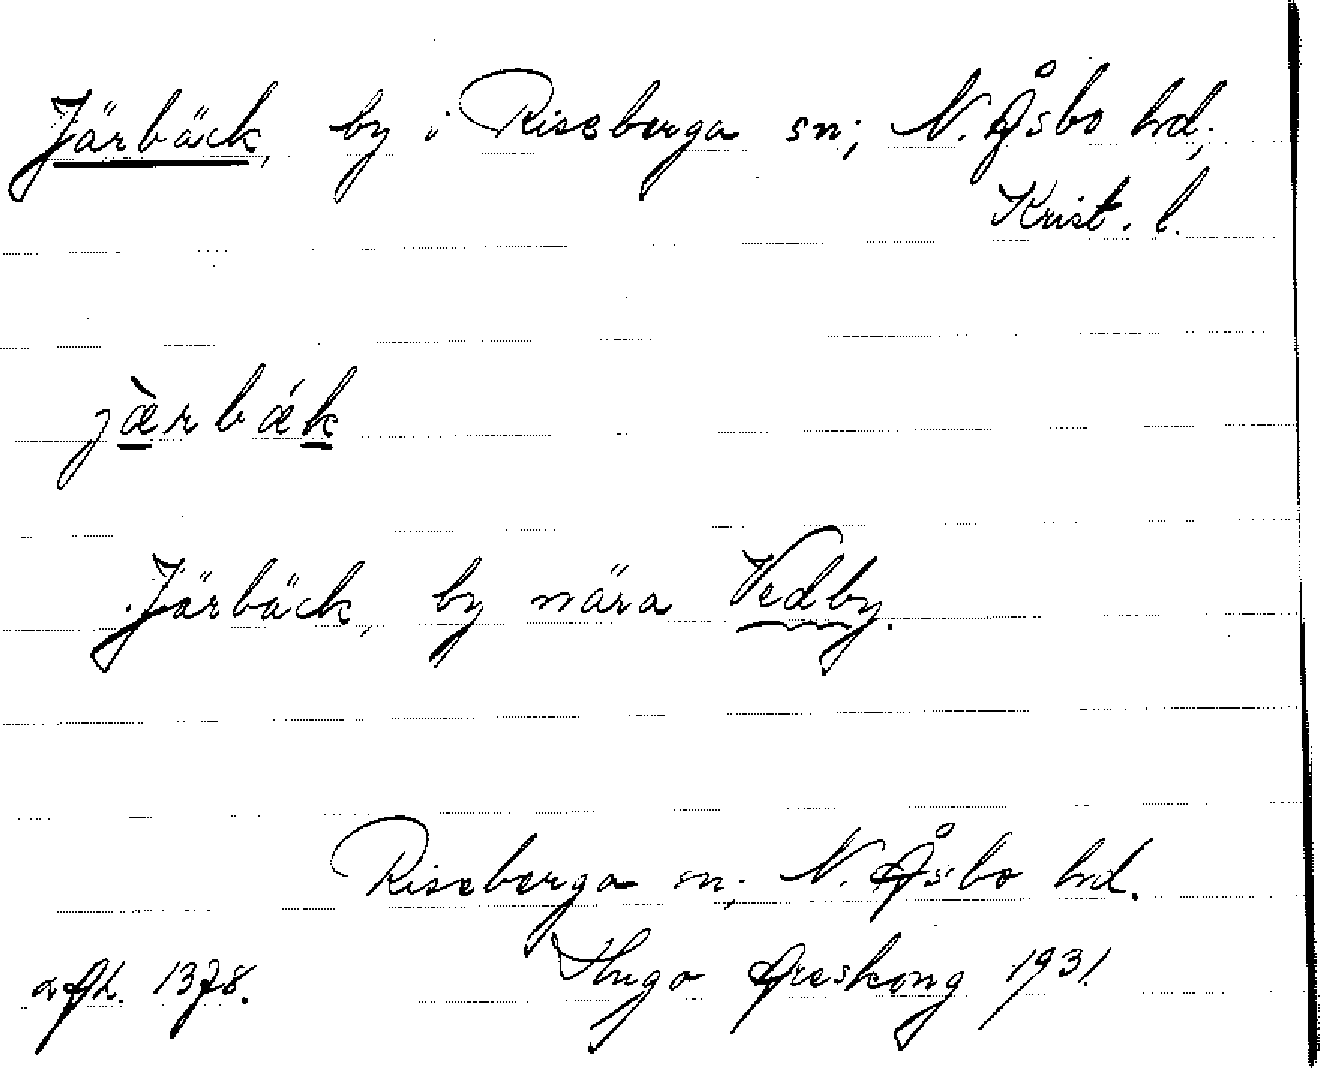 Järbäck, by i Riseberga sn; N. Åsbo hd;
Krist. l.
jæ̀rbǽk
Järbäck, by nära Vedby.
Riseberga sn; N. Åsbo hd.
Hugo Areskoug 1931
acc. 1378.